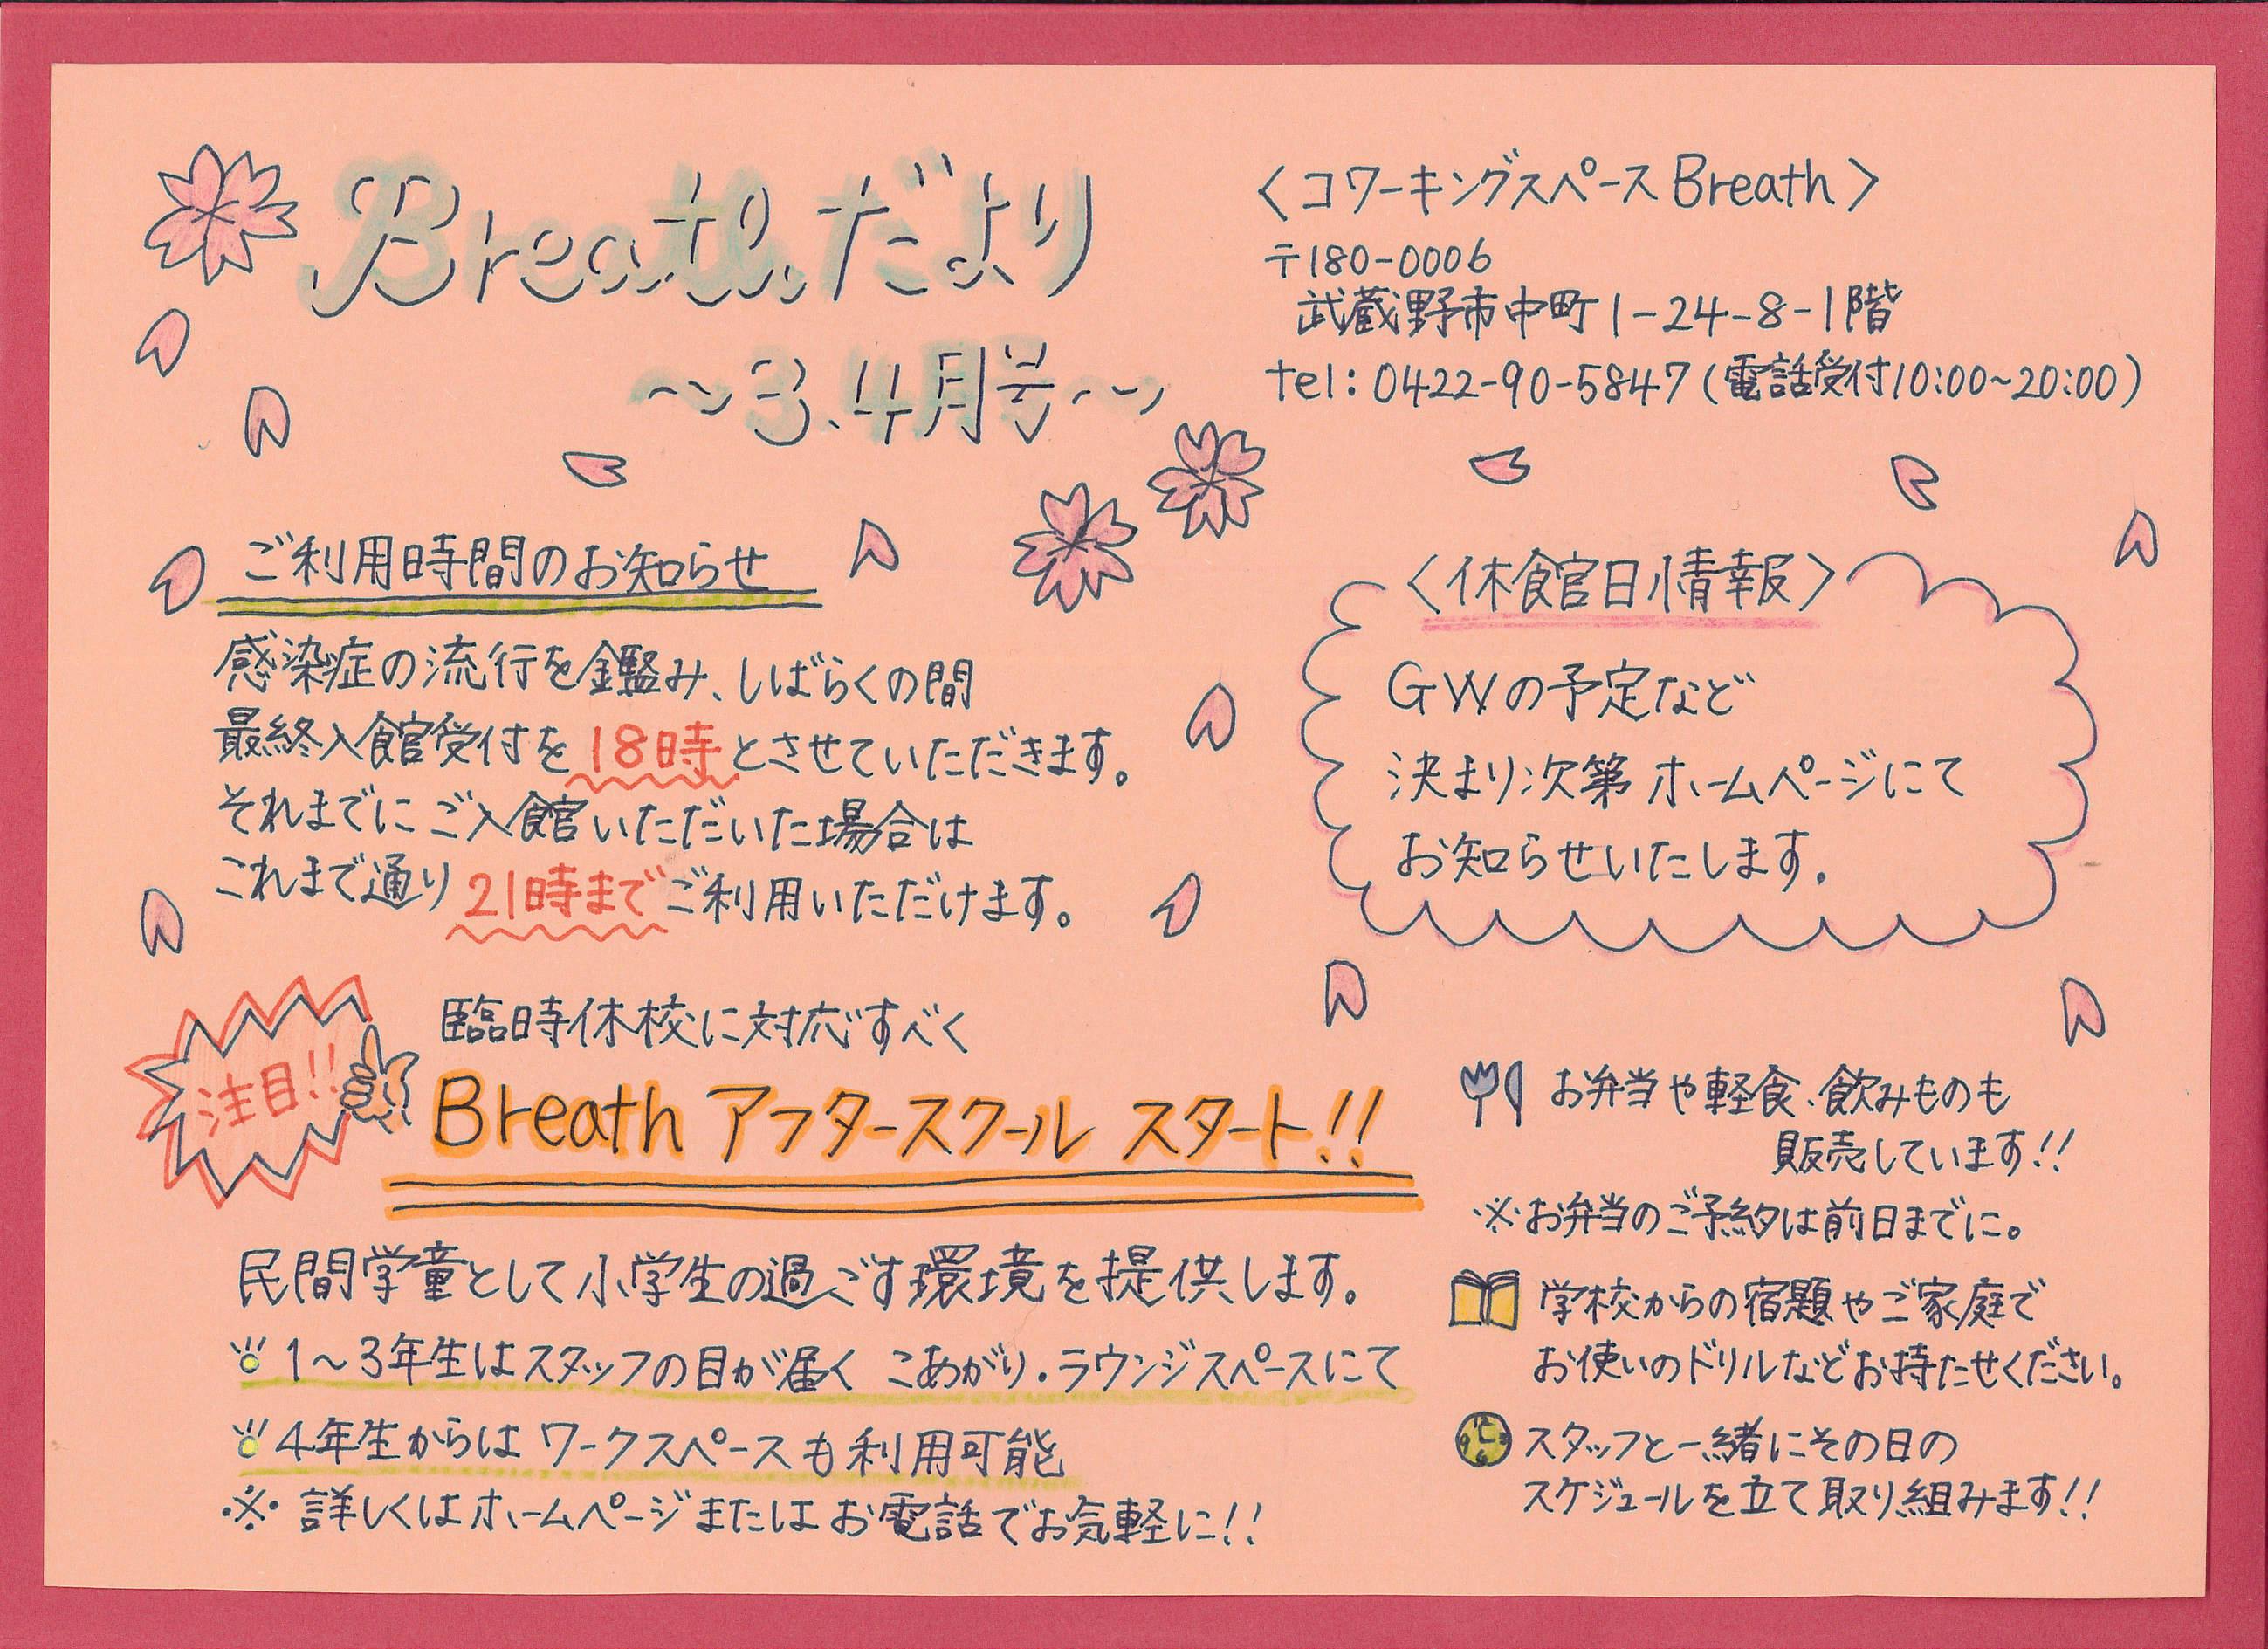 Breathだより
～3.4月号～
〈コワーキングスペースBreath〉
〒180-0006
武蔵野市中町1-24-8-1階
tel:0422-90-5847(電話受付10:00~20:00)
ご利用時間のお知らせ
感染症の流行を鑑み、しばらくの間
最終入館受付を18時とさせていただきます。
それまでにご入館いただいた場合は
これまで通り21時までご利用いただけます。
〈休館日情報〉
GWの予定など
決まり次第ホームページにて
お知らせいたします。
注目!!
臨時休校に対応すべく
Breathアフタースクールスタート!!
民間学童として小学生の過ごす環境を提供します。
1～3年生はスタッフの目が届く こあがり・ラウンジスペースにて
4年生からは ワークスペースも利用可能
※詳しくはホームページまたはお電話でお気軽に!!
お弁当や軽食、飲みものも
販売しています!!
※お弁当のご予約は前日までに。
学校からの宿題やご家庭で
お使いのドリルなどお持たせください。
スタッフと一緒にその日の
スケジュールを立て取り組みます!!